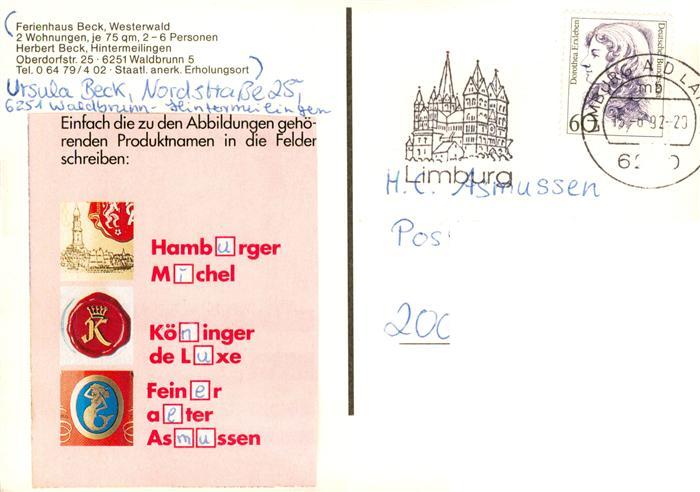 (Ferienhaus Beck, Westerwald
2 Wohnungen, je 75 qm, 2-6 Personen
Herbert Beck, Hintermeilingen
Oberdorfstr. 25 · 6251 Waldbrunn 5
Tel. 0 64 79/4 02 · Staatl. anerk. Erholungsort)
Ursula Beck, Nordstraße 25,
6251 Waldbrunn-Hintermeilingen
Einfach die zu den Abbildungen gehö-
renden Produktnamen in die Felder
schreiben:
Hamburger
Michel
K
Köninger
de Luxe
Feiner
aelter
Asmussen
Limburg
Dorothea Erxleben
60
15.-8.92-20
mb
H.C. Asmussen
Pos
200